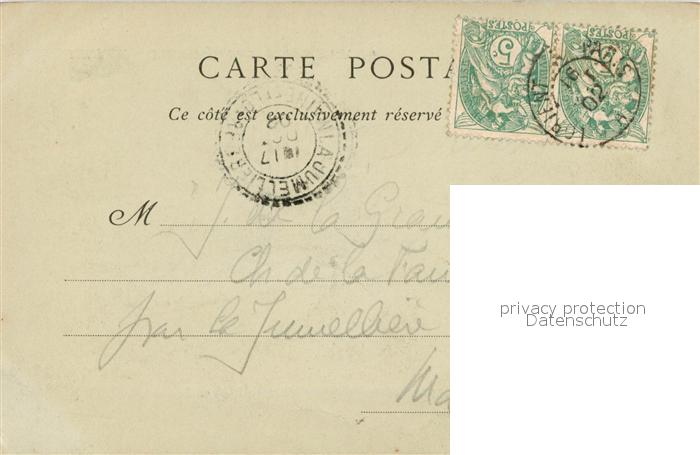 CARTE POSTA
Ce côté est exclusivement réservé
POSTES
5c
POSTES
LA JUMELLIERE
17
02
PARIS
16
02
M J. de la Gran
Ch de la Fau
par la Jumellière
Ma
privacy protection
Datenschutz